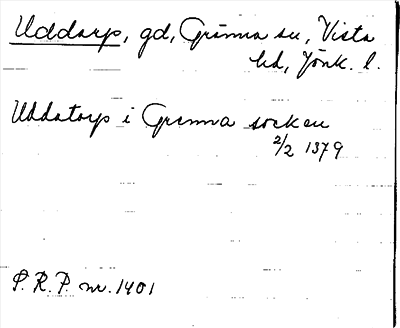 Uddarp, gd, Gränna sn, Vista
hd, Jönk. l.
Uddatorp i Grenna socken
2/2 1379
P. R. P. nr. 1401